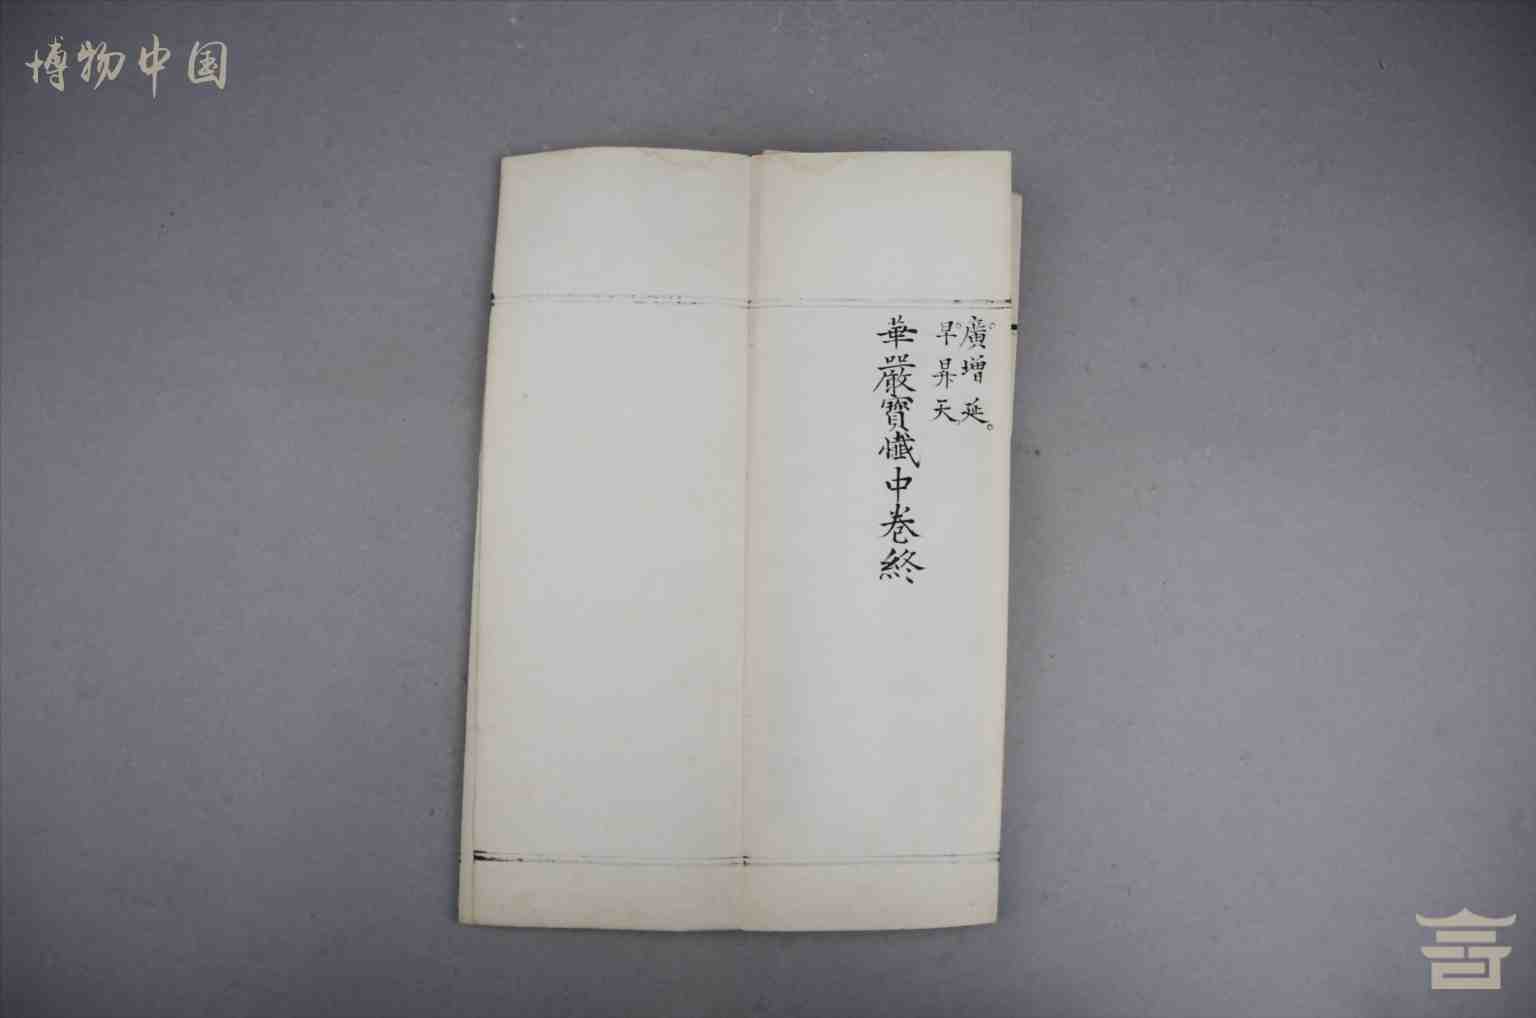 博物中国
廣增延。
早昇天。
華嚴寳懺中卷終